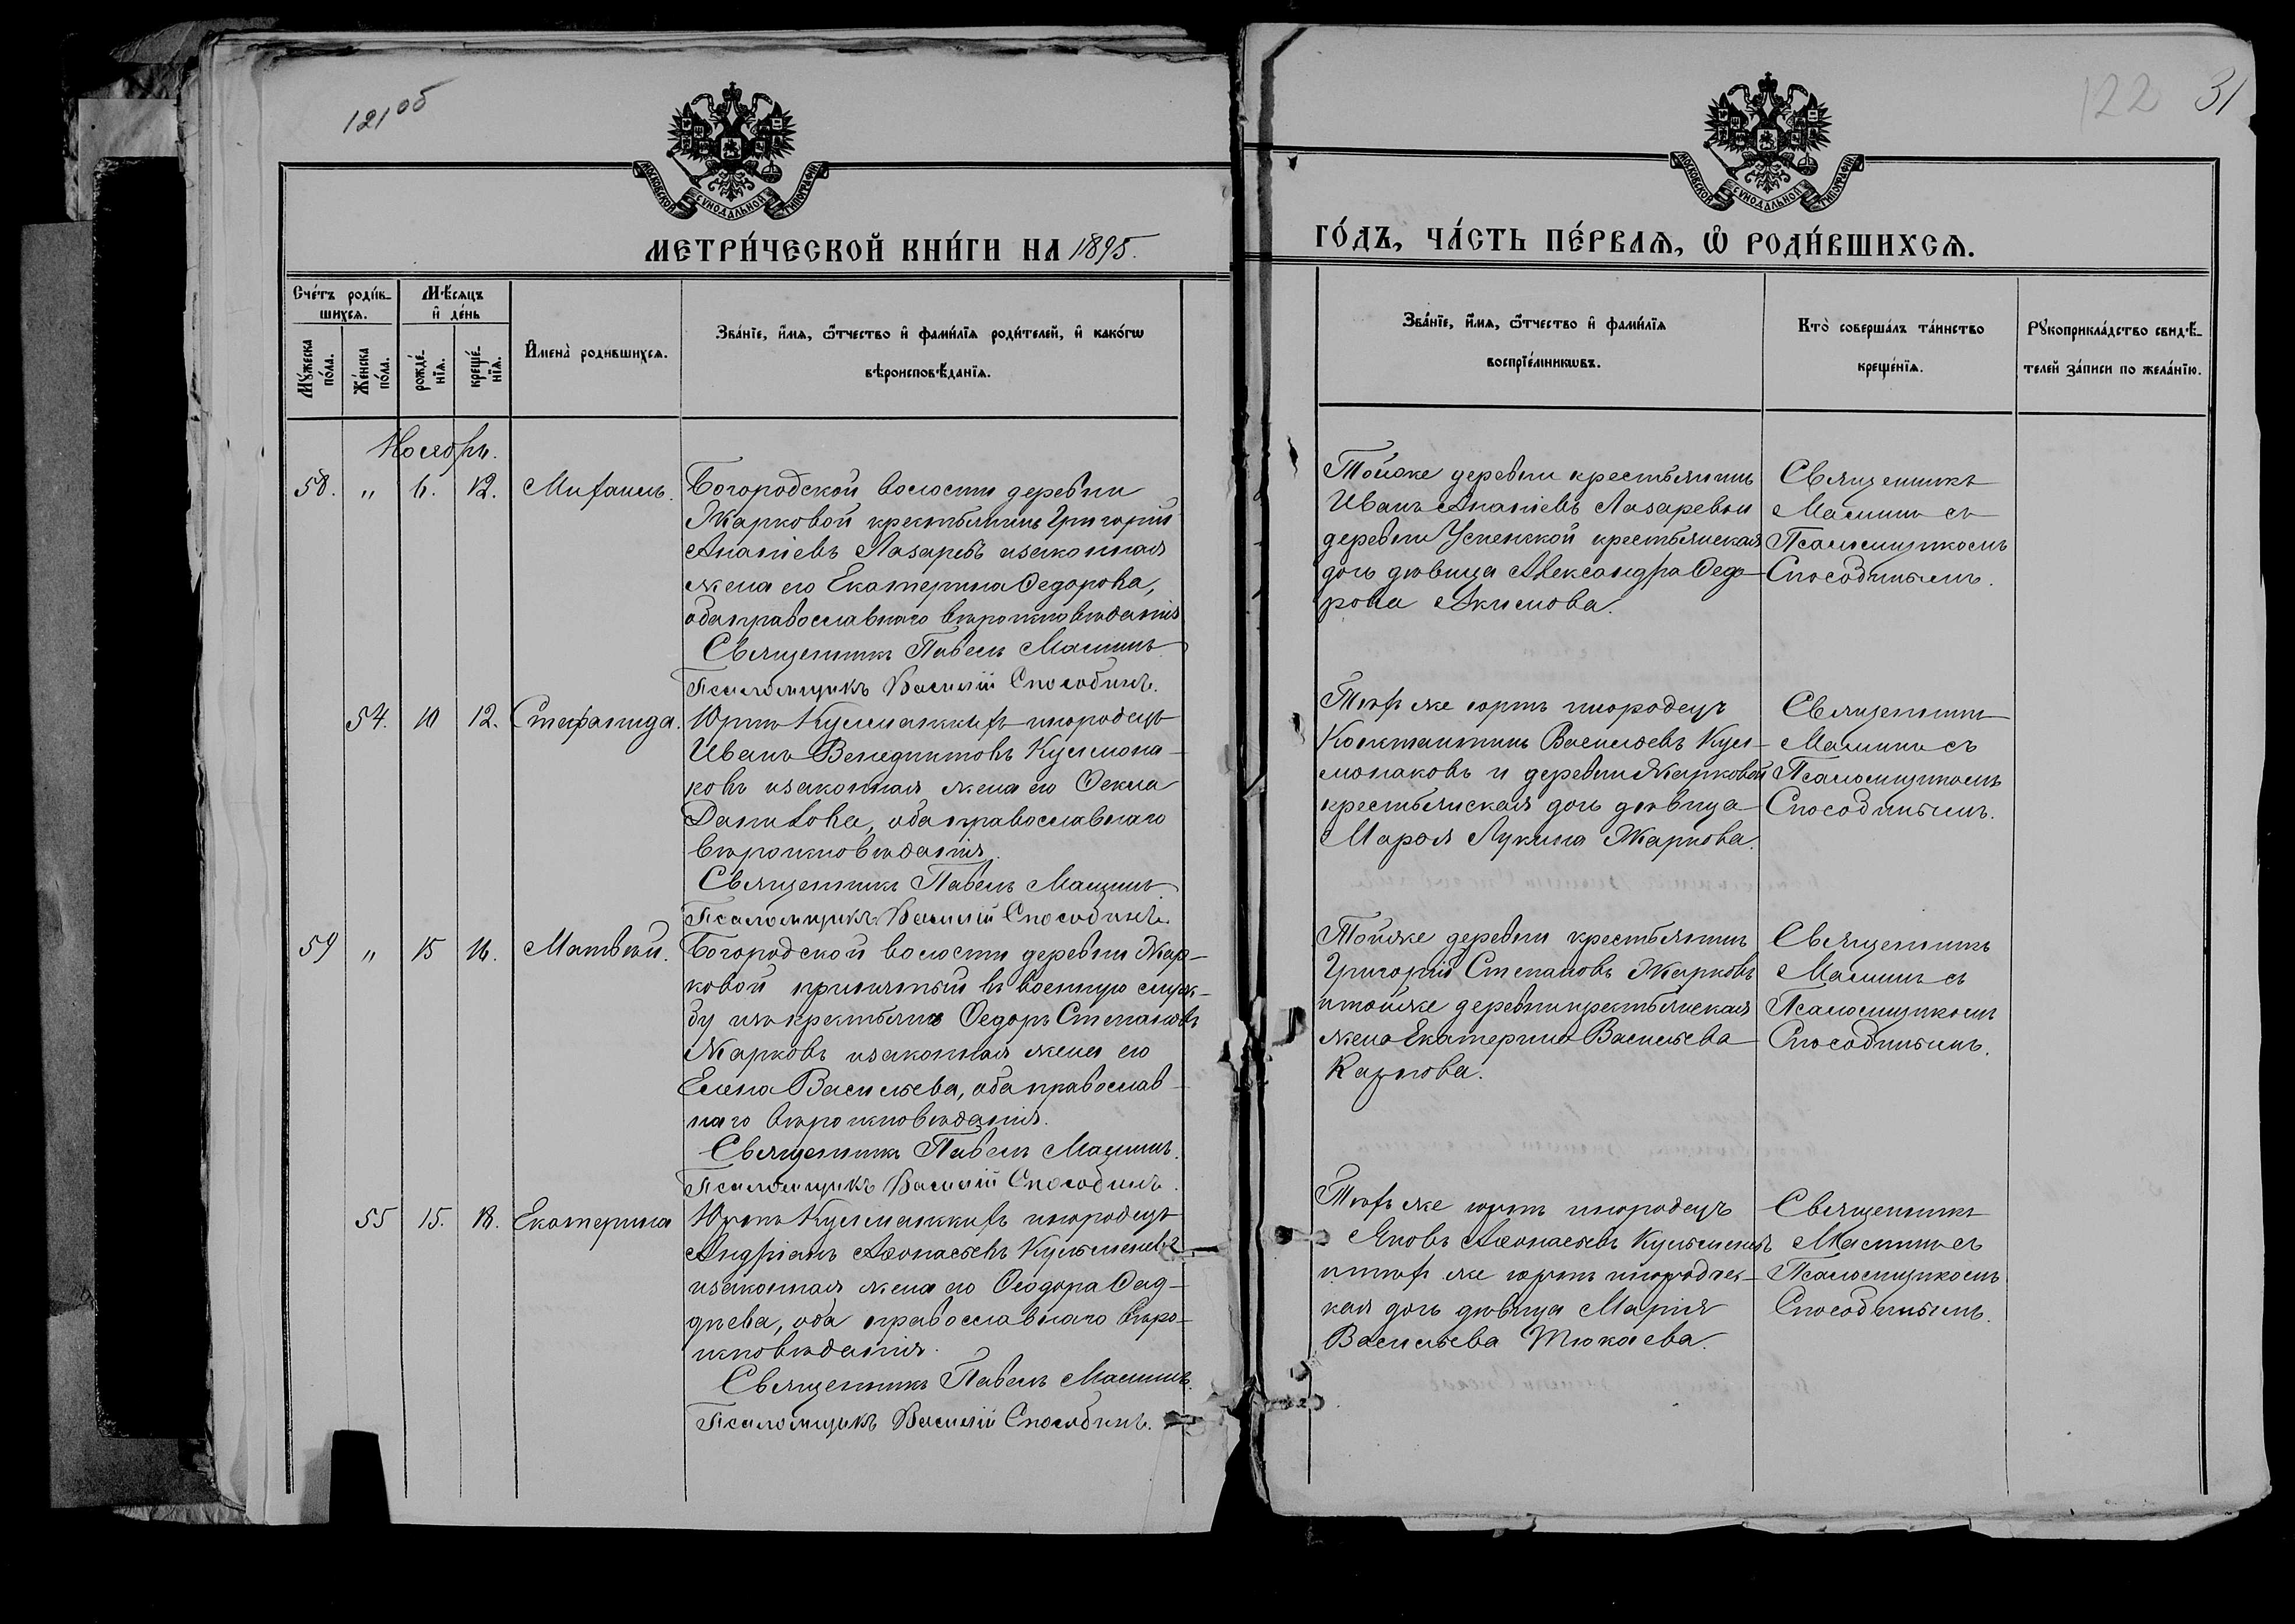 121об
122 31
МОСКОВСКОЙ СѴНОДАЛЬНОЙ ТИПОГРАФІИ
МОСКОВСКОЙ СѴНОДАЛЬНОЙ ТИПОГРАФІИ
МЕТРИ́ЧЕСКОЙ КНИ́ГИ НА 1895.
ГО́ДЪ, ЧА́СТЬ ПЕ́РВАѦ, Ѿ РОДИ́ВШИХСѦ.
Сче́тъ роди́в-
шихсѧ.
Мꙋ́жеска по́ла.
Же́нска по́ла.
Мѣ́сѧцъ
и҆ де́нь
рожде́-
нїѧ.
креще́-
нїѧ.
И҆мена̀ роди́вшихсѧ.
Зва́нїе, и҆́мѧ, ѻ҆́тчество и҆ фами́лїѧ роди́телей, и҆ како́гѡ
вѣроисповѣ́данїѧ.
Зва́нїе, и҆́мѧ, ѻ҆́тчество и҆ фами́лїѧ
воспрїе́мникѡвъ.
Кто̀ соверша́лъ та́инство
креще́нїѧ.
Рꙋкоприкла́дство свидѣ́-
телей за́писи по жела́нїю.
Ноябрь.
58. " 6. 12. Михаилъ.
Богородской волости деревни
Жарковой крестьянинъ Григорій
Ананіевъ Лазаревъ изаконная
жена его Екатерина Ѳедорова,
оба православнаго вѣроисповѣданія
Священникъ Павелъ Малинъ
Псаломщикъ Василій Способинъ.
Тойже деревни крестьянинъ
Иванъ Ананіевъ Лазаревъ и
деревни Успенской крестьянская
дочь дѣвица Александра Ѳедо-
рова Акимова.
Священникъ
Малинъ съ
Псаломщикомъ
Способинымъ.
54. 10 12. Стефанида.
Юртъ инородецъ
Иванъ Венедиктовъ Кулмона-
ковъ изаконная жена его Ѳекла
Данилова, оба православнаго
вѣроисповѣданія.
Священникъ Павелъ Малинъ
Псаломщикъ Василій Способинъ.
Тѣхъ же юртъ инородецъ
Константинъ Васильевъ Кул-
монаковъ и деревни Жарковой
крестьянская дочь дѣвица
Марѳа Лукина Жаркова.
Священникъ
Малинъ съ
Псаломщикомъ
Способинымъ.
59 " 15 16. Матвѣй.
Богородской волости деревни Жар-
ковой принятый въ военную служ-
бу изъ крестьянъ Ѳедоръ Степановъ
Жарковъ изаконная жена его
Елена Васильева, оба православ-
наго вѣроисповѣданія.
Священникъ Павелъ Малинъ.
Псаломщикъ Василій Способинъ.
Тойже деревни крестьянинъ
Григорій Степановъ Жарковъ
итойже деревни крестьянская
жена Екатерина Васильева
Карпова.
Священникъ
Малинъ съ
Псаломщикомъ
Способинымъ.
55 15. 18. Екатерина
Юртъ инородецъ
Андріанъ Аѳонасьевъ
изаконная жена его Ѳеодора Ѳад-
дѣева, оба православнаго вѣро-
исповѣданія.
Священникъ Павелъ Малинъ.
Псаломщикъ Василій Способинъ.
Тѣхъ же юртъ инородецъ
Яковъ Аѳонасьевъ
итѣхъ же юртъ инородчес-
кая дочь дѣвица Марія
Васильева Тюкаева.
Священникъ
Малинъ съ
Псаломщикомъ
Способинымъ.